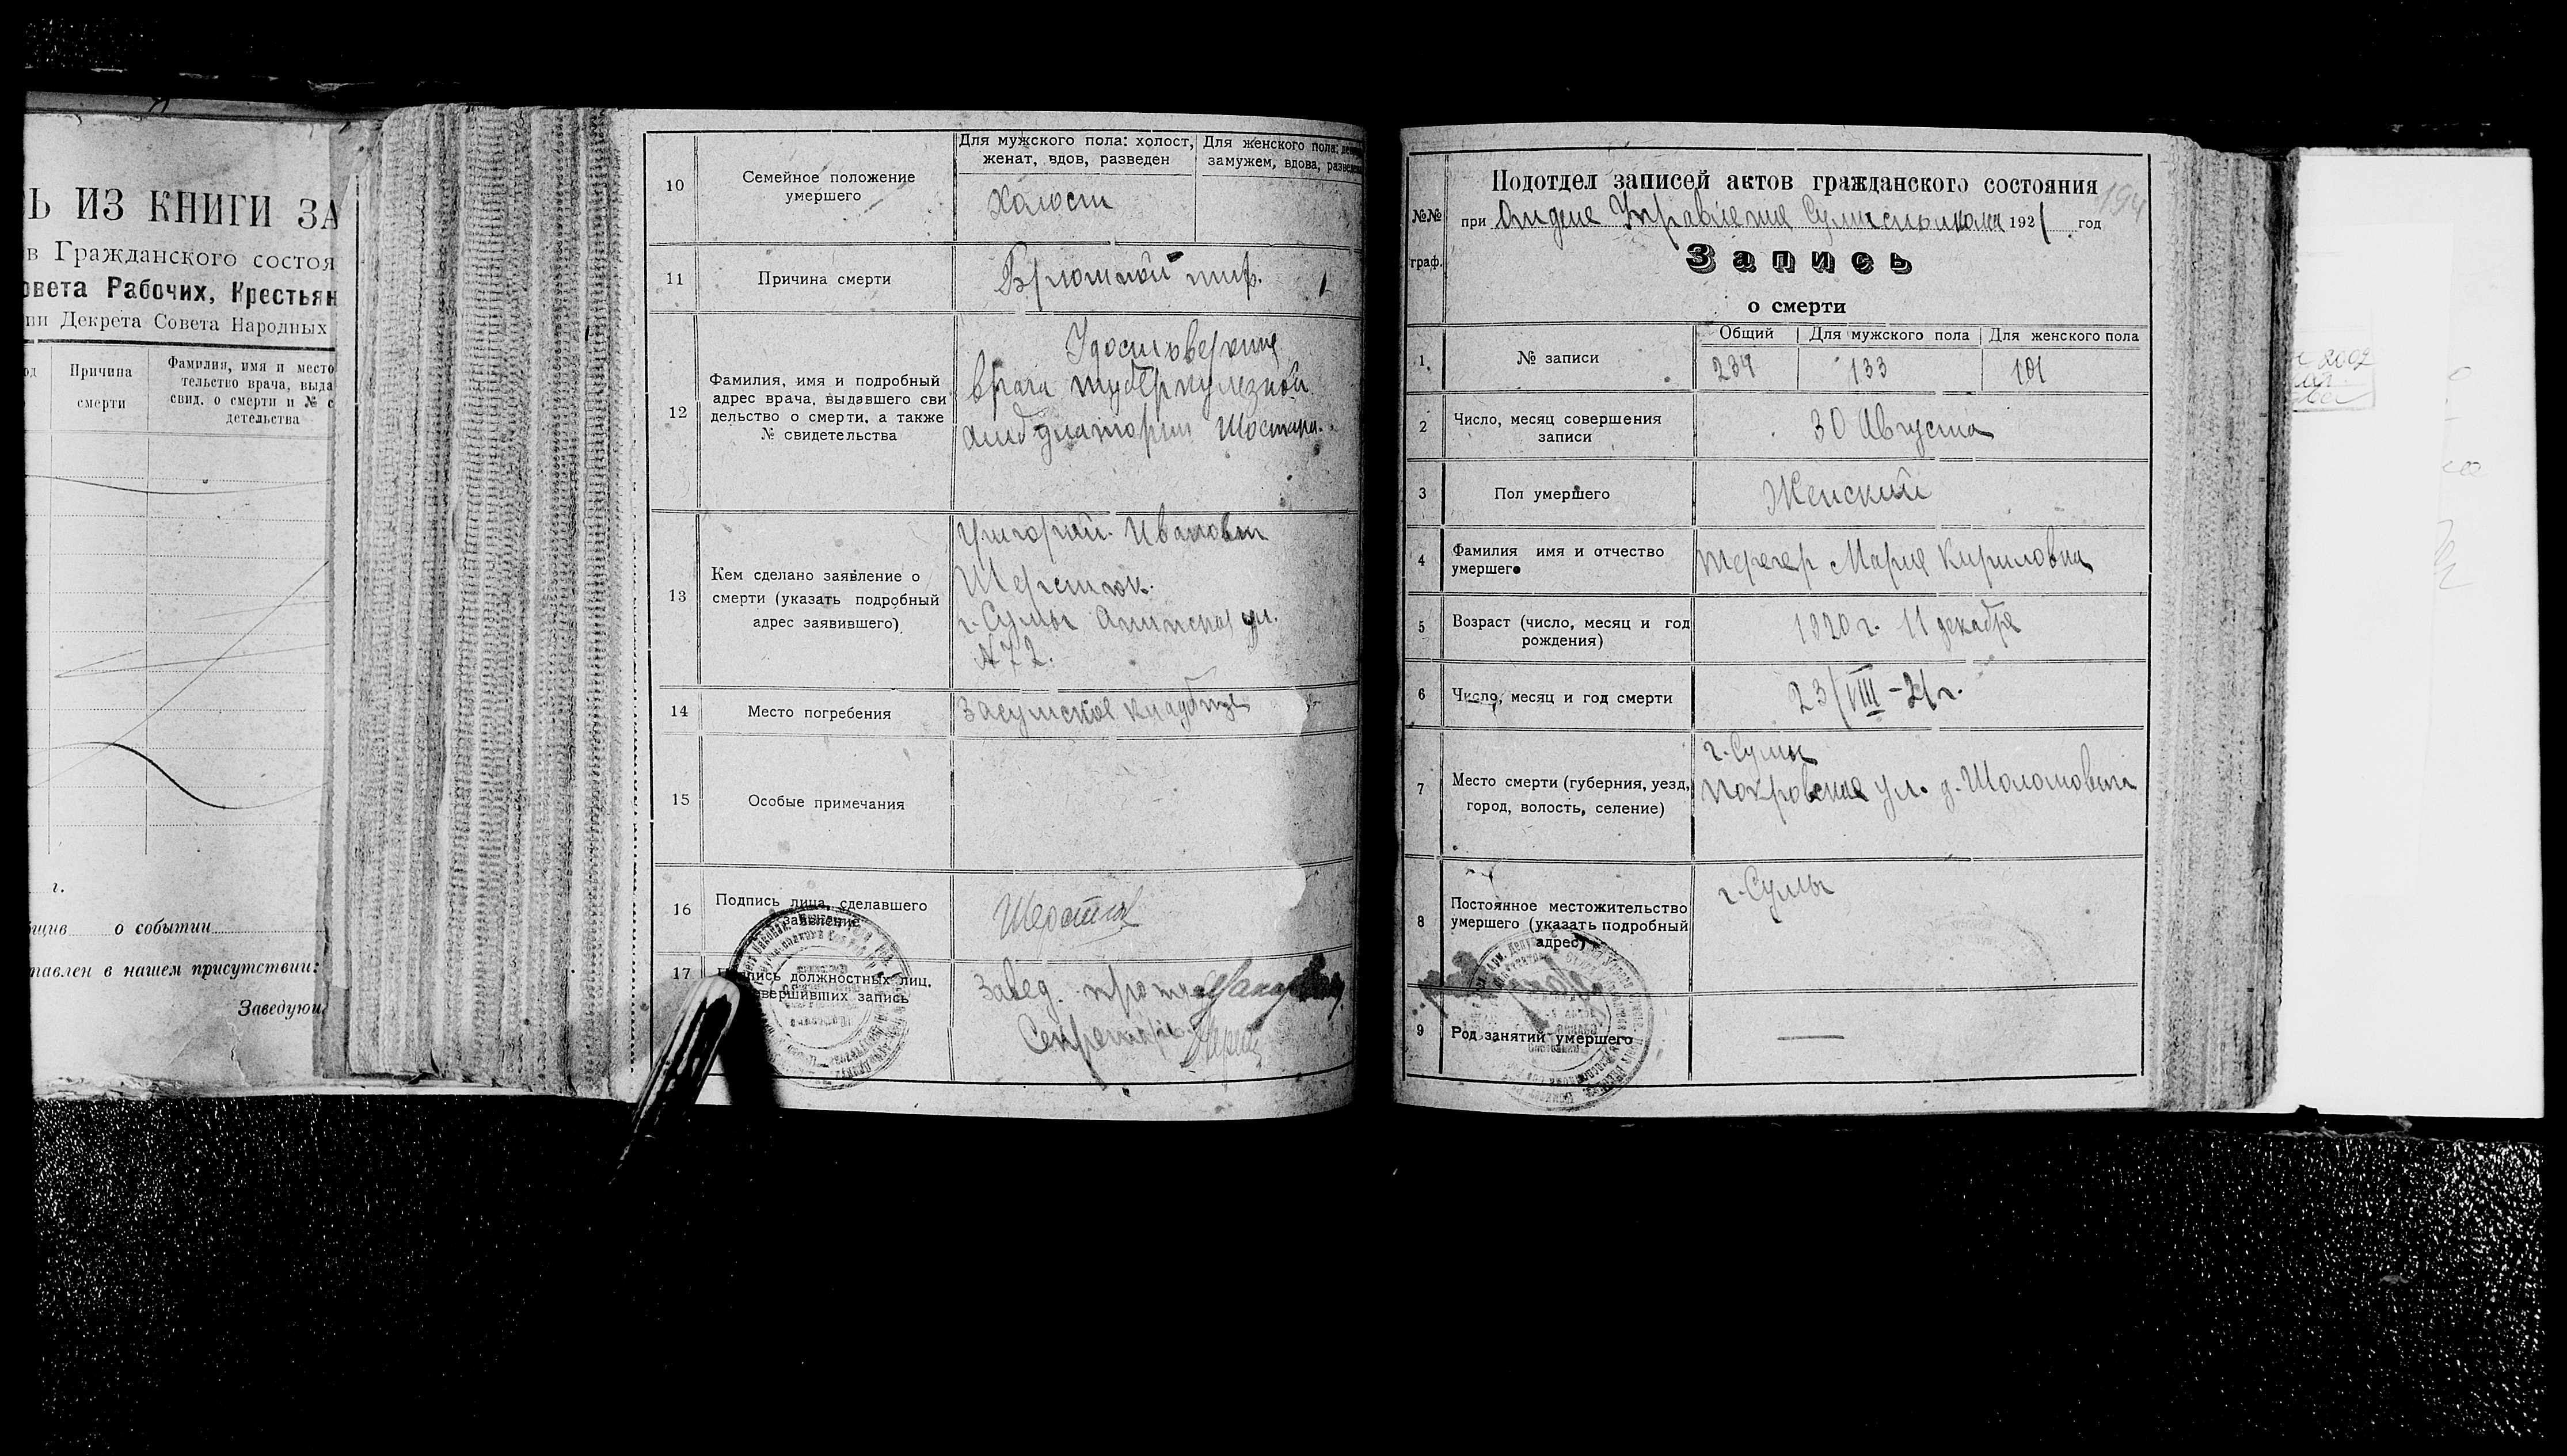 Ь ИЗ КНИГИ ЗА
в Гражданского состоя
овета Рабочих, Крестьян
ии Декрета Совета Народных
Причина
смерти
Фамилия, имя и место
тельство врача, выда
свид. о смерти и № с
детельства
г.
о событии
тавлен в нашем присутствии:
Заведующ
10
Семейное положение
умершего
Для мужского пола: холост,
женат, вдов, разведен
Для женского пола: деви
замужем, вдова, разведен
Холост
11
Причина смерти
Брюшной тиф.
12
Фамилия, имя и подробный
адрес врача, выдавшего сви
дельство о смерти, а также
№ свидетельства
Удостоверение
врача туберкулезной
амбулатории
13
Кем сделано заявление о
смерти (указать подробный
адрес заявившего)
Григорий Иванович
Шерстюк.
г. Сумы ул.
№ 72.
14
Место погребения
Засумское кладбище
15
Особые примечания
16
Подпись лица, сделавшего
заявление
17
Подпись должностных лиц,
совершивших запись
Завед.
Секретарь
Подотдел записей актов гражданского состояния
194
№№
граф.
при Отделе Управления 1921 год
Запись
о смерти
1
№ записи
Общий
Для мужского пола
Для женского пола
234
133
101
2
Число, месяц совершения
записи
30 Августа
3
Пол умершего
Женский
4
Фамилия имя и отчество
умершего
Мария Кириловна
5
Возраст (число, месяц и год
рождения)
1920 г. 11 декабря
6
Число, месяц и год смерти
23/VIII-21 г.
7
Место смерти (губерния, уезд,
город, волость, селение)
г. Сумы
Покровская ул. д. Шоломовича
8
Постоянное местожительство
умершего (указать подробный
адрес)
г. Сумы
9
Род занятий умершего
—